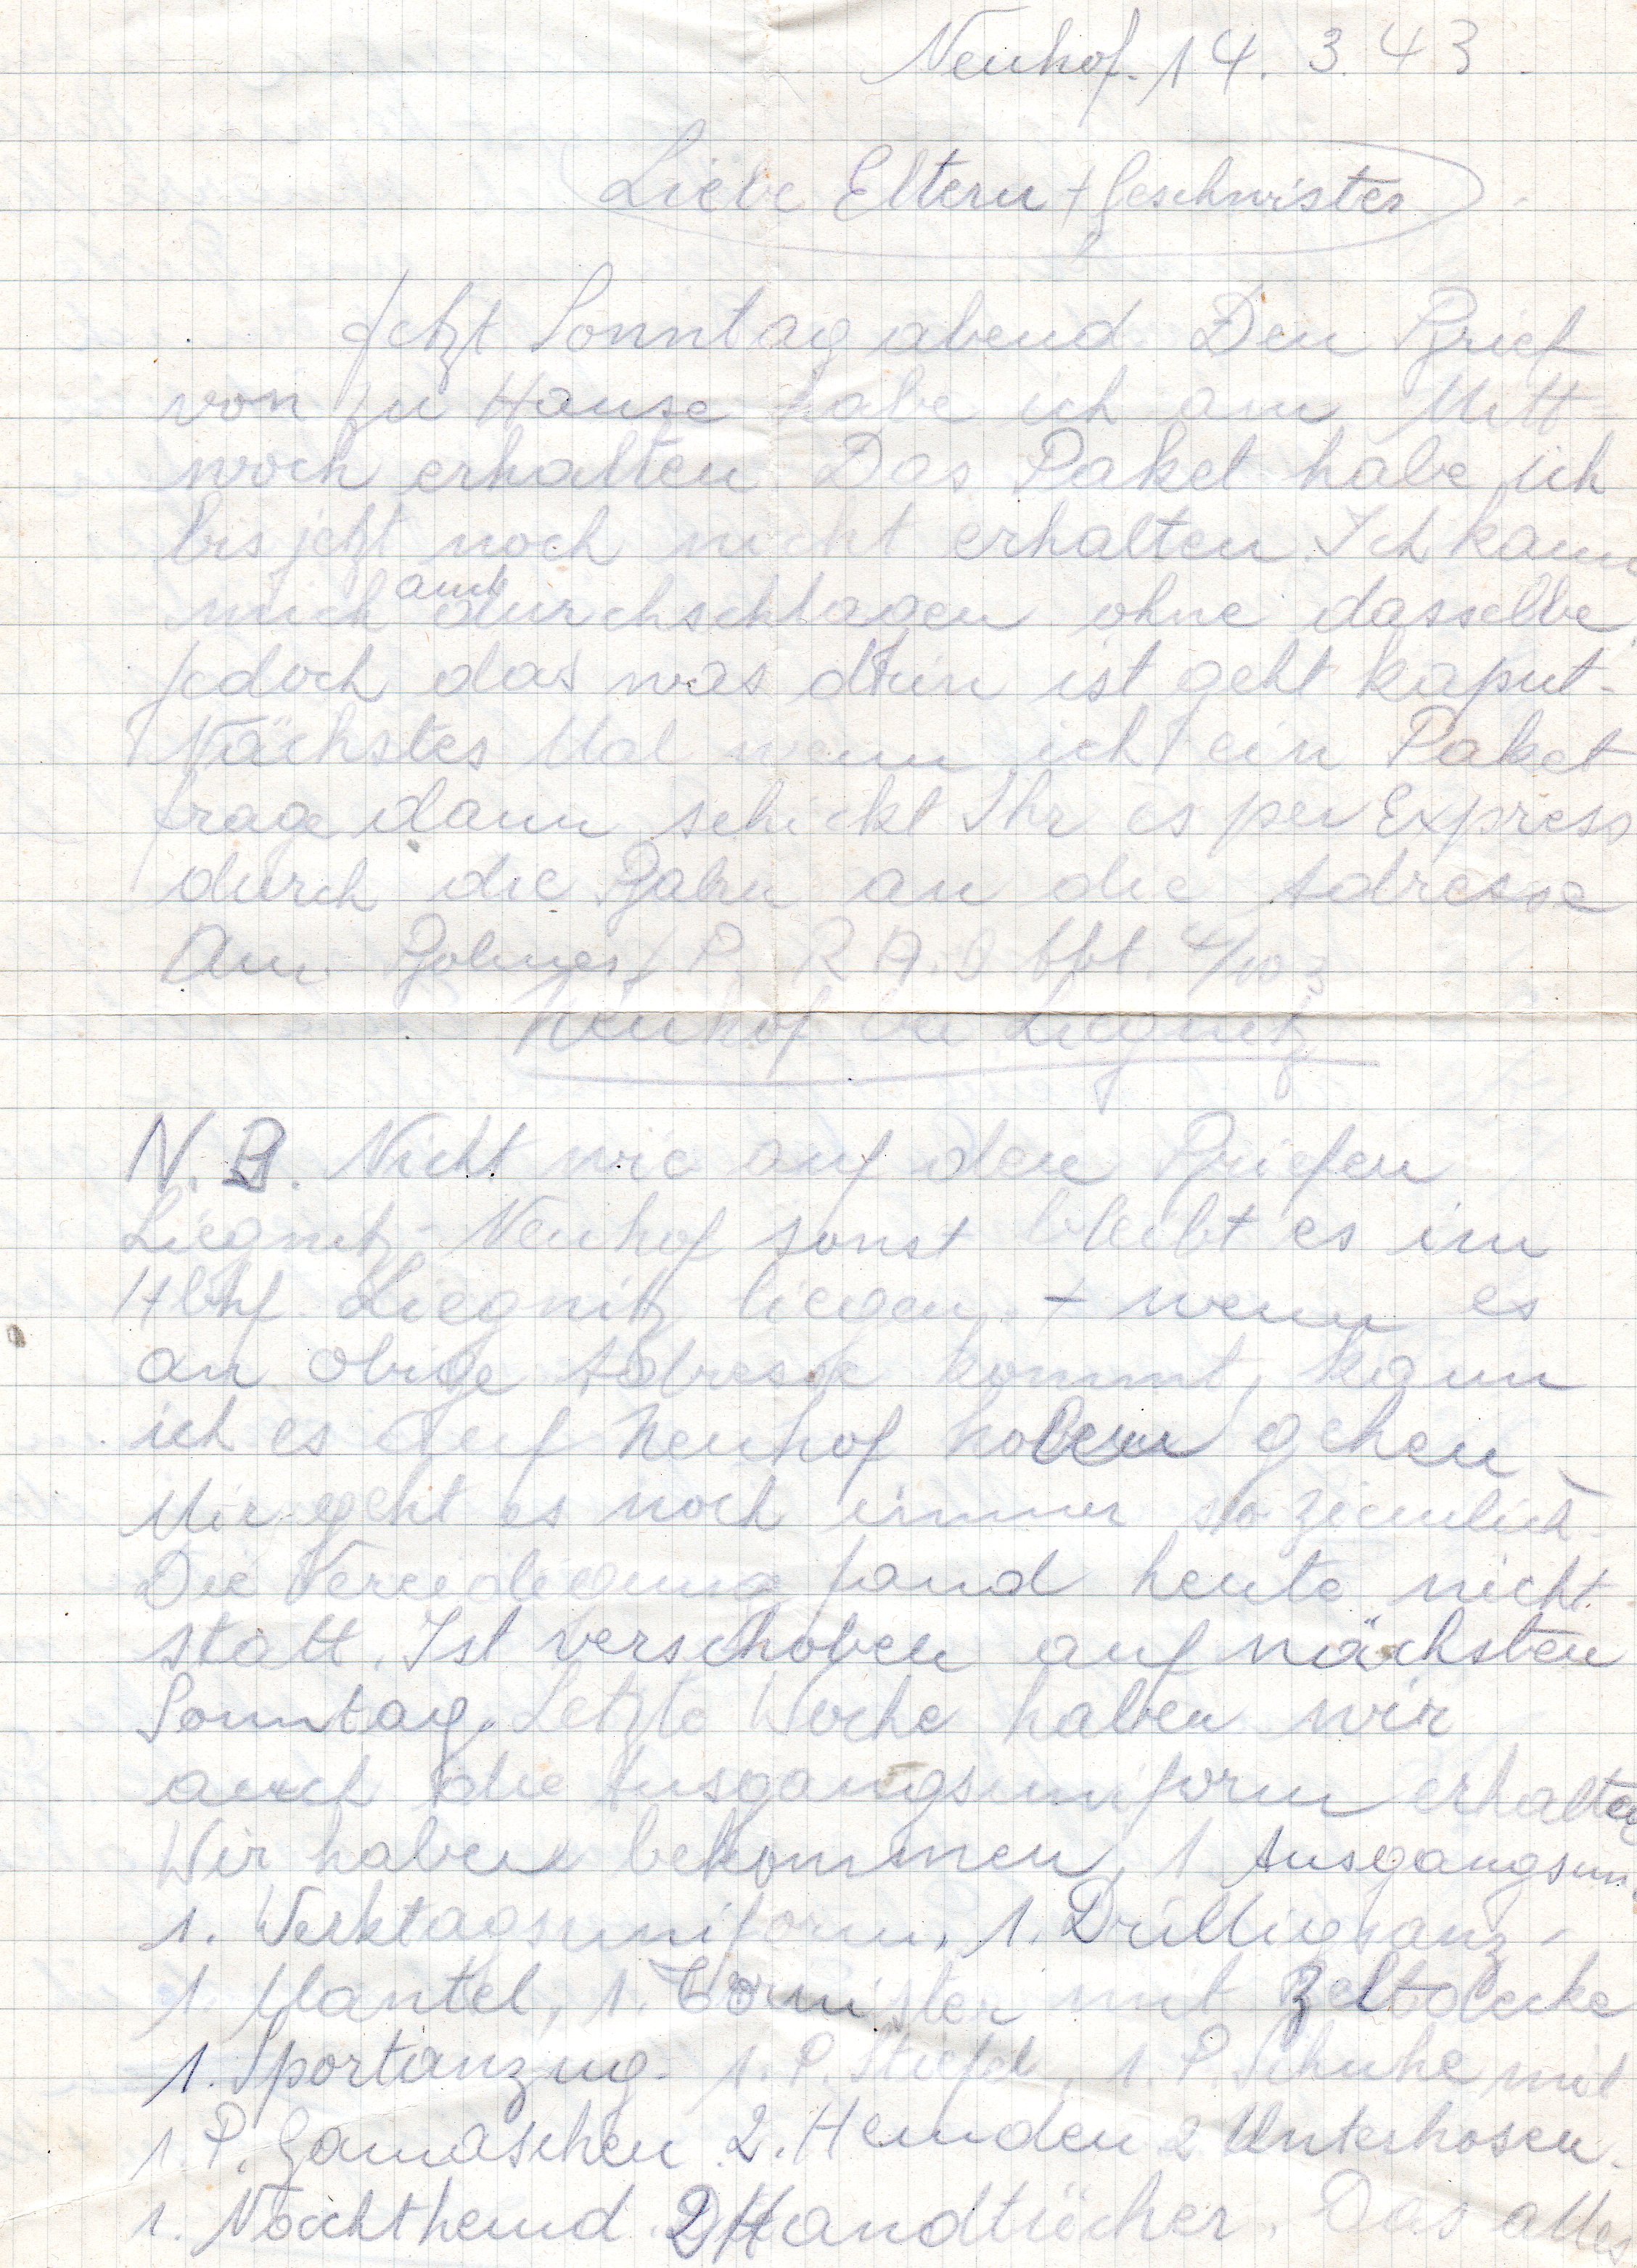 Neuhof. 14. 3. 43.
Liebe Eltern + Geschwister.
Jetzt Sonntag abend. Den Brief
von zu Hause habe ich am Mitt=
woch erhalten. Das Paket habe ich
bis jetzt noch nicht erhalten. Ich kann
mich auch durchschlagen ohne dasselbe,
jedoch das was drin ist geht kaput.
Nächstes Mal wenn ich ein Paket
frage dann schickt Ihr es per Express
durch die Bahn an die Adresse
Arm. P. R. A. D. Abt. 4/103
Neuhof bei Liegnitz
N.B. Nicht wie auf den Briefen
Liegnitz-Neuhof sonst bleibt es im
Hbhf. Liegnitz liegen + wenn es
an obige Adresse kommt, kann
ich es auf Neuhof holen gehen.
Mir geht es noch immer so ziemlich.
Die Vereidigung fand heute nicht
statt. Ist verschoben auf nächsten
Sonntag. Letzte Woche haben wir
auch die Ausgangsuniform erhalten
Wir haben bekommen, 1 Ausgangsun.
1. Werktagsuniform, 1. Drilliganz-
1. Mantel, 1. Tornister mit Zeltdecke
1. Sportanzug. 1. P. Stiefel, 1. P. Schuhe mit
1. P. Gamaschen 2. Hemden 2 Unterhosen.
1. Nachthemd. 2 Handtücher. Das alles